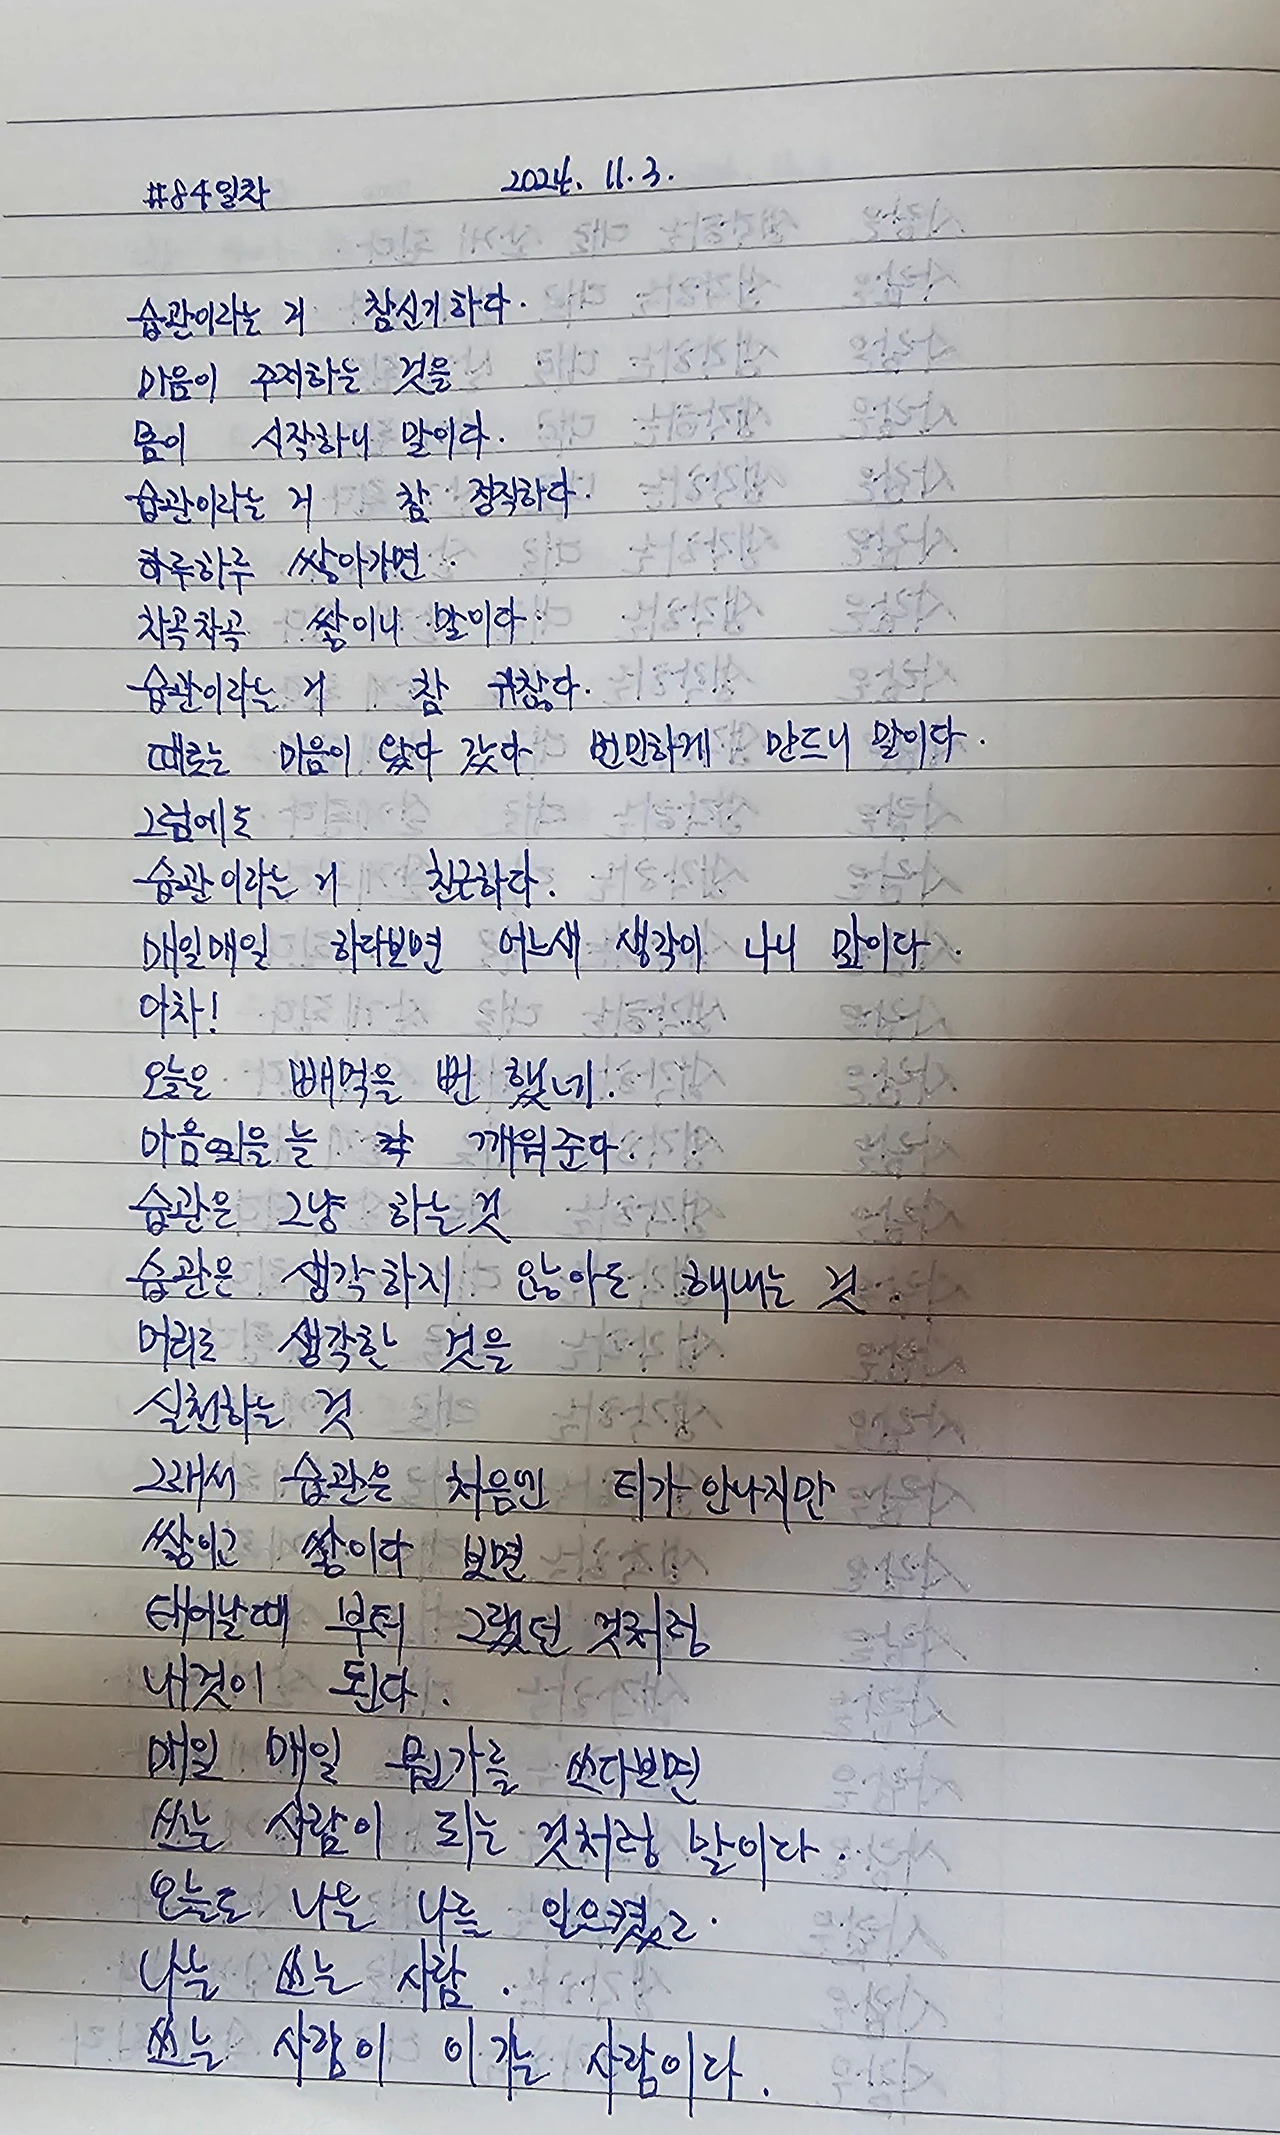 #84일차 2024. 11. 3.
습관이라는 거 참신기하다.
마음이 주저하는 것을
몸이 시작하니 말이다.
습관이라는 거 참 정직하다.
하루하루 쌓아가면
차곡차곡 쌓이니 말이다.
습관이라는 거 참 귀찮다.
때로는 마음이 왔다 갔다 번민하게 만드니 말이다.
그럼에도
습관이라는 거 친근하다.
매일매일 하다보면 어느새 생각이 나니 말이다.
아차!
오늘은 빼먹을 뻔 했네.
늘 깨워준다.
습관은 그냥 하는것
습관은 생각하지 않아도 해내는 것.
머리로 생각한 것을
실천하는 것
그래서 습관은 처음엔 티가 안나지만
쌓이고 쌓이다 보면
태어날때 부터 그랬던 것처럼
내것이 된다.
매일 매일 뭔가를 쓰다보면
쓰는 사람이 되는 것처럼 말이다.
오늘도 나는 나를 일으켰고.
나는 쓰는 사람.
쓰는 사람이 이기는 사람이다.